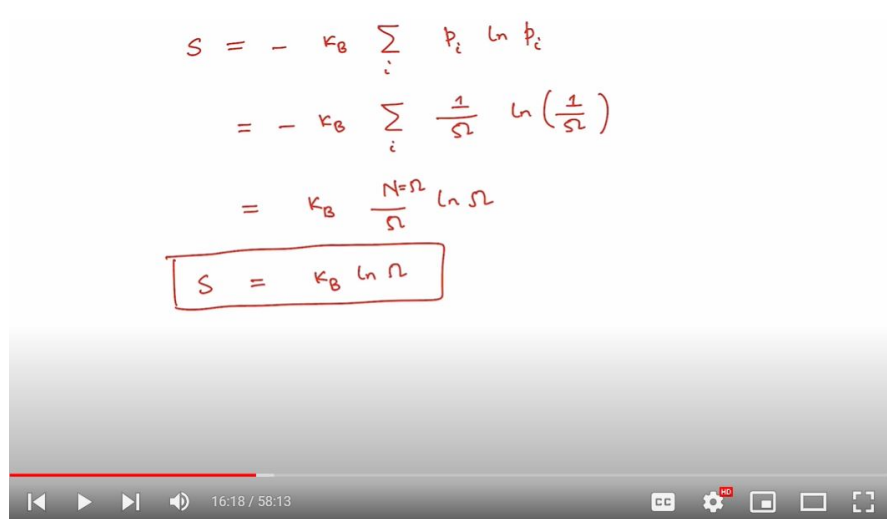 S = - K_B Σ_i p_i ln p_i
= - K_B Σ_i 1/Ω ln(1/Ω)
= K_B N=Ω/Ω ln Ω
S = K_B ln Ω
16:18 / 58:13
CC
HD